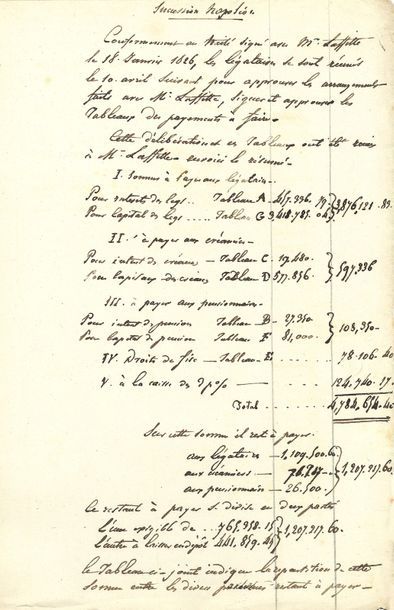 Succession Napoléon
Conformément au traité signé avec Mr Laffitte
le 18 Janvier 1826, les légataires se sont réunis
le 10 avril suivant pour approuver les arrangements
faits avec Mr Laffitte, signer et approuver les
Tableaux des payements à faire.
Cette délibération et ces Tableaux ont été remis
à Mr Laffitte en voici le résumé.
I. Sommes à payer aux légataires
Pour intérêt des legs .. Tableau A 457.336. } 3,876,121.83.
Pour Capital des legs .... Tableau G 3,418,785. 04
II. à payer aux créanciers
Pour intérêt de créances — Tableau C. 19.480. } 597,336
Pour capitaux des créances Tableau D 577.856
III. à payer aux pensionnaires
Pour intérêt de pension Tableau B — 27.350 } 108,350—
Pour capital de pension Tableau F 81,000.
IV. Droits de fisc — Tableau E — 78.106.40
V. à la caisse des 3 p% — 124.740.17.
Total ..... 4,784,654.40
Sur cette somme il reste à payer.
aux légataires — 1,109.500.60 } 1,207,217.60.
aux créanciers —
aux pensionnaires — 26.500.
Ce restant à payer se divise en deux parts
L'une exigible de ... 765.358.15 } 1,207.217.60.
L'autre à laisser en dépôt 441.859.45
Le Tableau ci-joint indique la répartition de cette
somme entre les divers restant à payer—